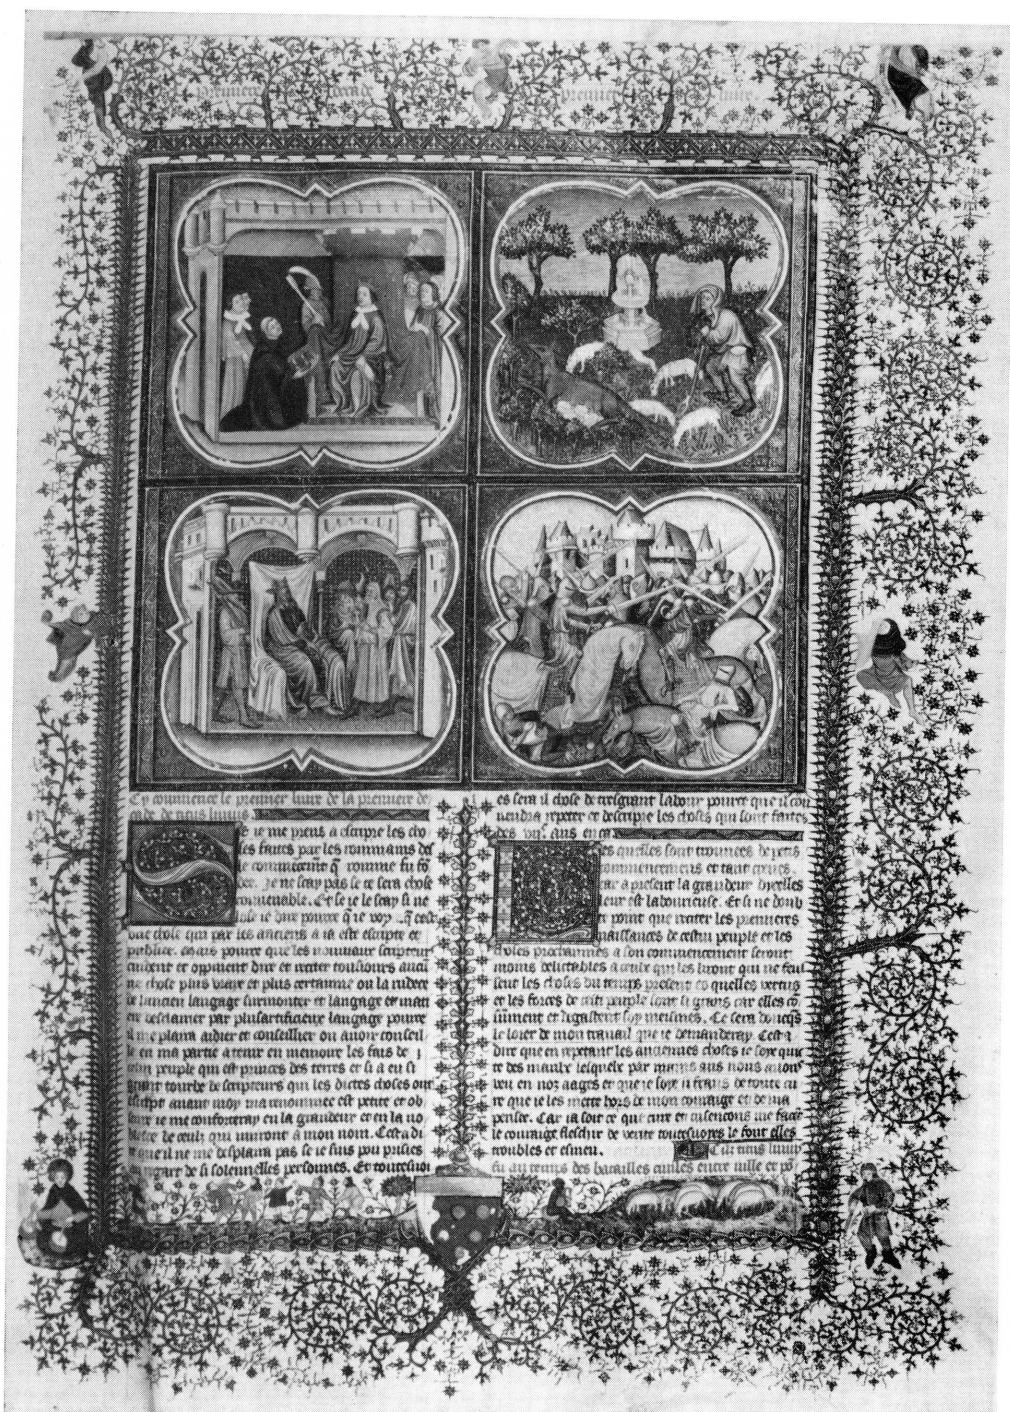 premier decade premier liure.
Cy commence le premier liure de la premiere de
cade de titus liuius
Se ie me prens a escripre les cho
ses faites par les rommains des
le commencemt q romme fu fo
dee. Je ne scay pas se ce sera chose
conuenable. Et se ie le scay si ne
lose ie dire pource q ie voy q cest
une chose qui par les anciens a ia este escripte et
publiee. mais pource que les nouueaux scripteurs
cuident et oppinent dire et reciter tousiours aucu
ne chose plus vraye et plus certainne ou la rudece
de lancien langage surmonter et langage et mati
ere desclairer par plus artificieux langage pource
il me plaira aidier et conseillier ou auoir conseil
le en ma partie a tenir en memoire les fais de
peuple qui est princes des terres et si a eu si
grant tourbe de scripteurs qui les dictes choses ont
escript auant moy ma renommee est petite et ob
scure ie me conforteray en la grandeur et en la no
blece de ceulz qui nuiront a mon nom. Cest a di
re que il ne me desplaira pas se ie suis pou prisies
au regart de si solennelles personnes. Et toutesuoi
es sera il chose de tresgrant labour pource que il con
uendra repeter et descripre les choses qui sont faites
des viic ans en ca
es quelles sont trouuees de petis
commencemens et tant creues.
car a present la grandeur dycelles
leur est labourieuse. Et si ne doub
te point que reciter les premieres
naissances de cestui peuple et les
choses prochainnes a son commencement seront
moins delictables a ceulz qui les liront qui ne feul
sent les choses du temps present es quelles vertus
et les forces de cest peuple sont si grans car elles co
sument et degastent soy meismes. Ce sera doncqs
le loier de mon trauail que ie demanderay. Cest a
dire que en repetant les anciennes choses ie soye quic
te des maulx lesquelx par mains ans nous auons
veu en noz aages et que ie soye si frans de toute cu
re que ie les mette hors de mon courage et de ma
pensee. Car ia soit ce que cure et cusencons me face
le couraige fleschir de verite toutesuoyes le font elles
troubles et esmeu. Cil titus liuius
fu au temps des batailles ciuiles entre sille et po